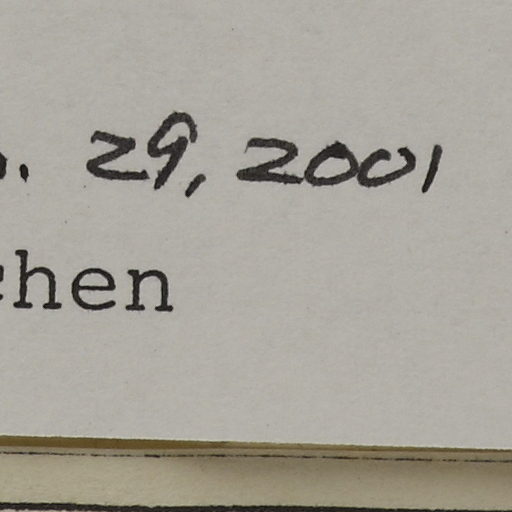 . 29, 2001
chen